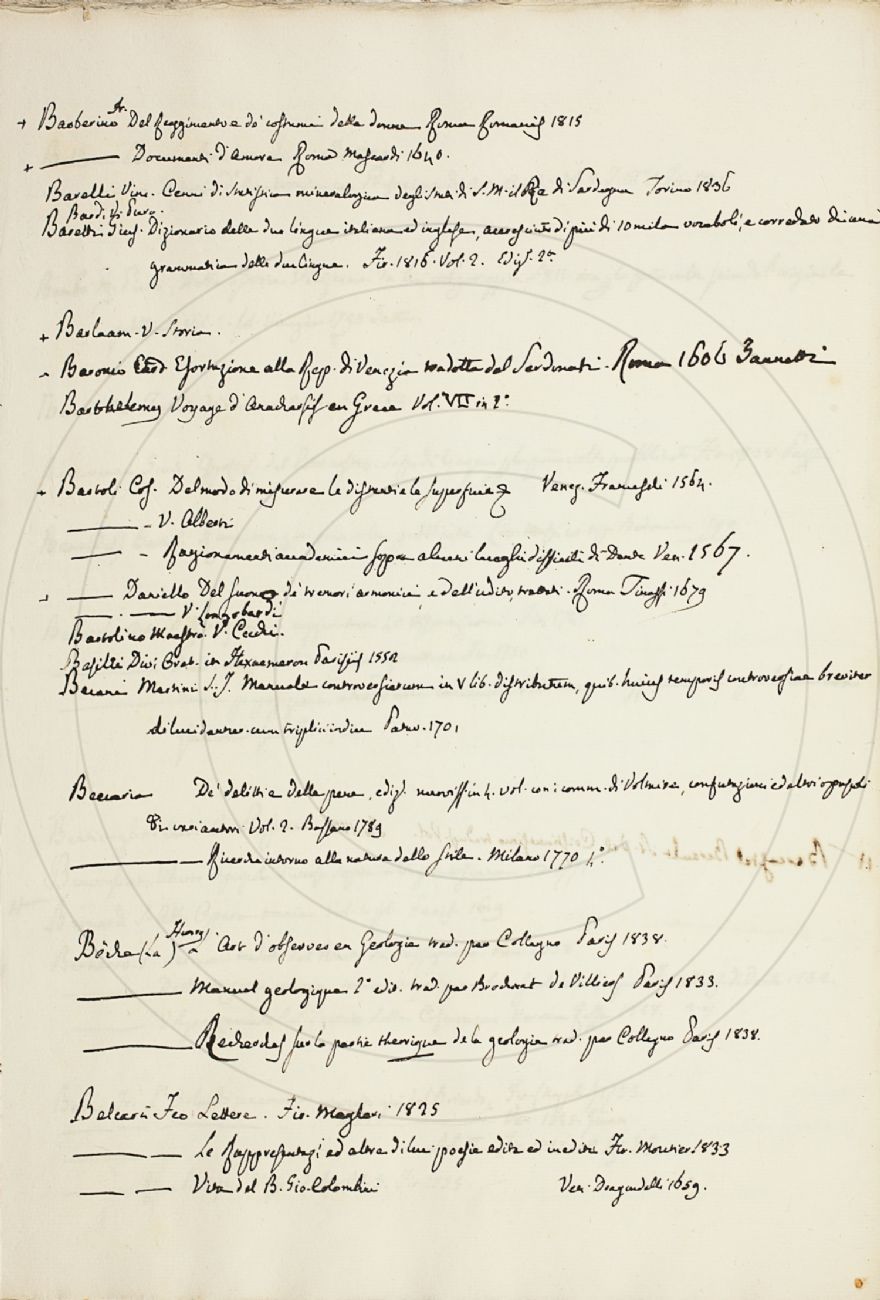 + Barberino Fr. Del Reggimento e de' costumi delle donne Roma Romanis 1815
+ —— Documenti d'Amore Roma Mascardi 1640.
Barelli Vinc. Cenni di statistica mineralogica degli stati di S. M. il Re di Sardegna Torino 1835
Bardi
Baretti Gius. Dizionario delle due lingue italiana ed inglese, accresciuto di più di 10 mila vocaboli, e corredato di una
grammatica delle due lingue. Fir. 1816. Vol. 2. Ediz. 2ª
+ Barlaam. V. Storia.
- Baronio Card Esortazione alla Rep. di Venezia tradotta dal Serdonati. Roma 1606 Zannetti
Barthelemy Voyage d'Anacharsis en Grece Vol. VII in 2°
+ Bartoli Cos. Del modo di misurare le distantie le superficie Venez. Franceschi 1564.
—— - V. Alberti
—— - Ragionamenti accademici sopra alcuni luoghi difficili di Dante Ven. 1567.
—— Daniello Del suono de' tremori armonici e dell'udito, trattati. Roma Tinassi 1679
—— —— V. Longobardi
Bartolino Maestro. V. Cecchi.
Basilii Divi Orat. in Hexaemeron Parisiis 1552
Becani Martini S. J. Manuale controversiarum in V lib. distributum, quib. huius temporis controversiae breviter
dilucidantur cum triplici indice Patav. 1701
Beccaria De' delitti e delle pene, ediz. nuoviss. in 4. vol. con i comm. di Voltaire, confutazioni ed altri opuscoli
di vari autori Vol. 2. Bassano 1789
—— Ricerche intorno alla natura dello stile. Milano 1770 4°.
Bêche (La) Henry Art d'observer en Geologie trad. par Collegno Paris 1838.
—— Manuel geologique 2ª edit. trad. par Brochant de Villiers Paris 1833.
—— Recherches sur la partie theorique de la geologie trad. par Collegno Paris 1838.
Belcari Feo Lettere. Fir. Magheri 1825
—— — Le Rappresentazi ed altre di lui poesie edite ed inedite Fir. Moutier 1833
—— — Vita del B. Gio. Colombini Ven. Dragondelli 1659.